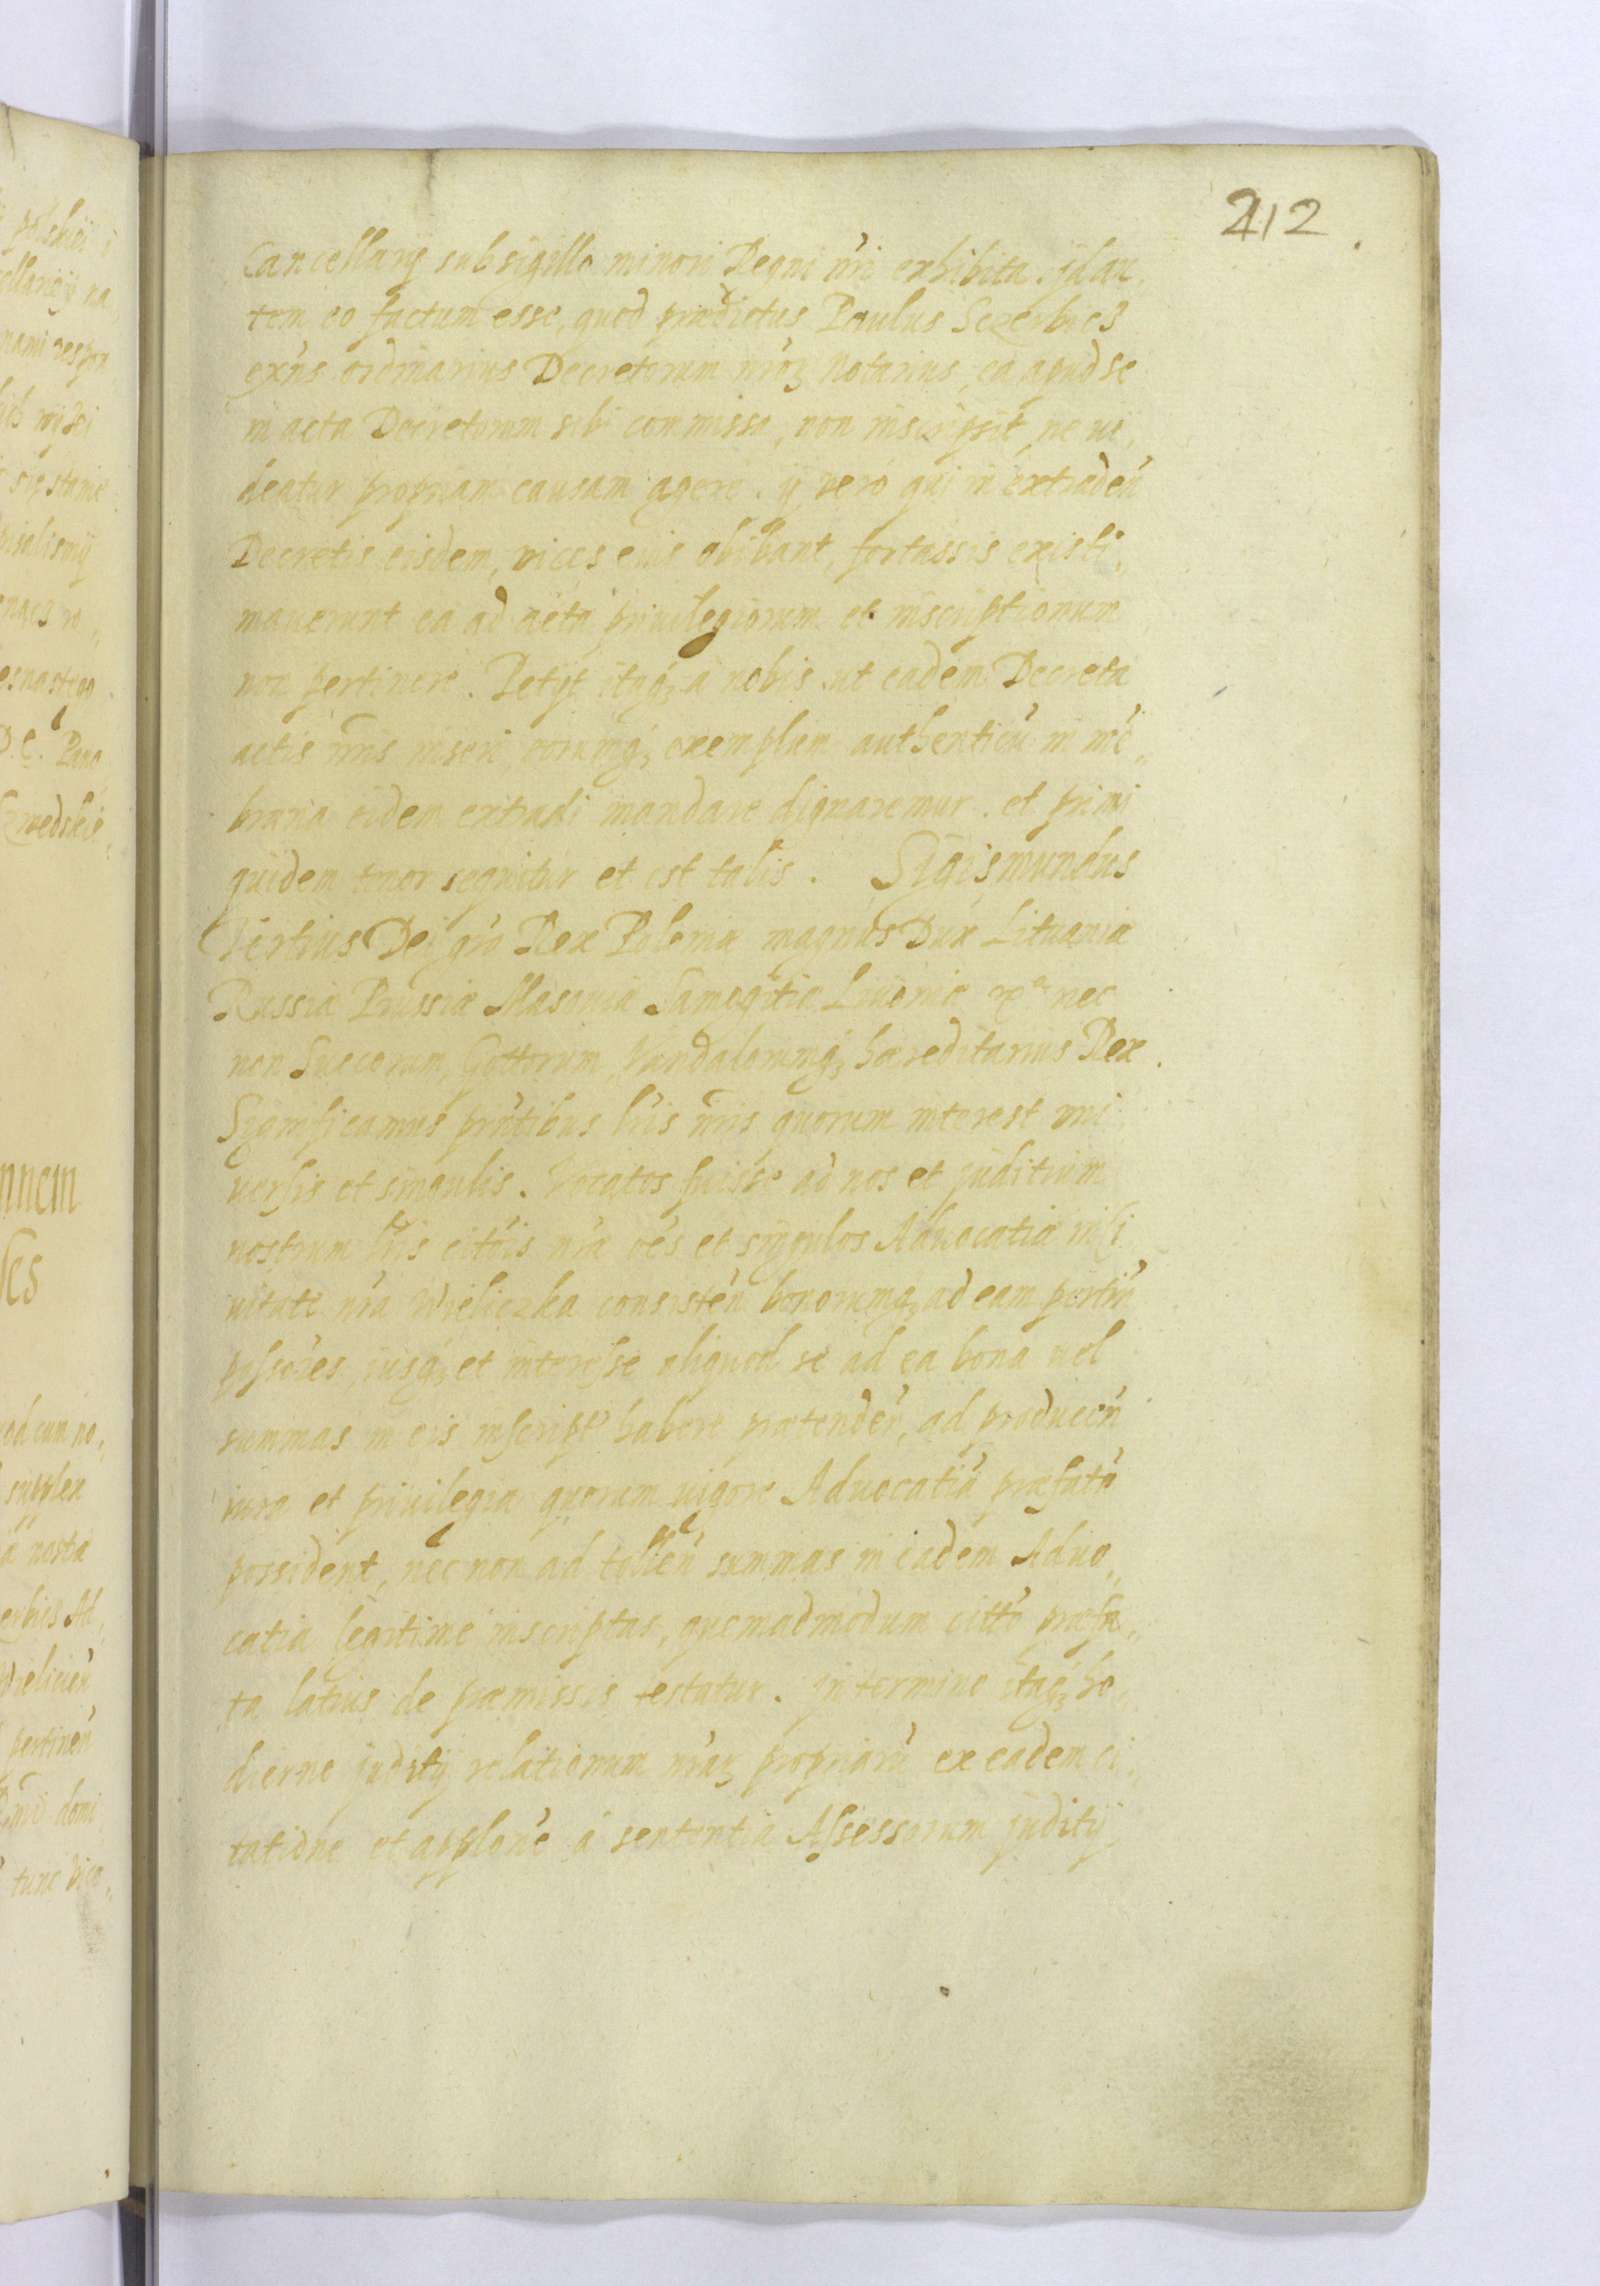 212
Cancellarij sub sigillo minori Regni nri exhibita. id au,
tem eo factum esse, quod prædictus Paulus Sczerbicz
exñs ordinarius Decretorum nroz Notarius, ea apud se
in acta Decretorum sibi commissa, non inscripsit, ne ui,
deatur propriam causam agere. ij vero qui in extradeñ
Decretis eisdem, vices eius obibant, fortassis existi„
mauerunt ea ad acta priuilegiorum et inscriptionum
non pertinere. Petijt itaq; a nobis ut eadem Decreta
actis nris inseri, eorumq; exemplum authenticũ in mẽ„
brana eidem extradi mandare dignaremur. et primi
quidem tenor sequitur et est talis. Sigismundus
Tertius Dei gra Rex Poloniæ magnus Dux Lituaniæ
Russiæ Prussiæ Masouiæ Samogitiæ Liuoniæ nec
non Suecorum, Gottorum, Vandalorumq; hæreditarius Rex.
Significamus pñtibus lris nris quorum interest vni
uersis et singulis. Vocatos fuisse ad nos et juditium
nostrum lris nris oẽs et singulos Aduocatiæ in ci
uitate nra Wieliczka consisteñ bonorumq; ad eam pertiñ
pssores, iusq; et interesse aliquod se ad ea bona uel
summas in eis inscript habere prætendeñ, ad produceñ
iura et priuilegia quorum uigore Aduocatiã præfatã
possident, nec non ad tolleñ summas in eadem Aduo„
catia legitime inscriptas, quemadmodum præfa„
ta latius de præmissis testatur. In termino itaq; ho,
dierno juditij relationum nrarz propriarũ ex eadem ci„
tatione et applone á sententia Assessorum juditij